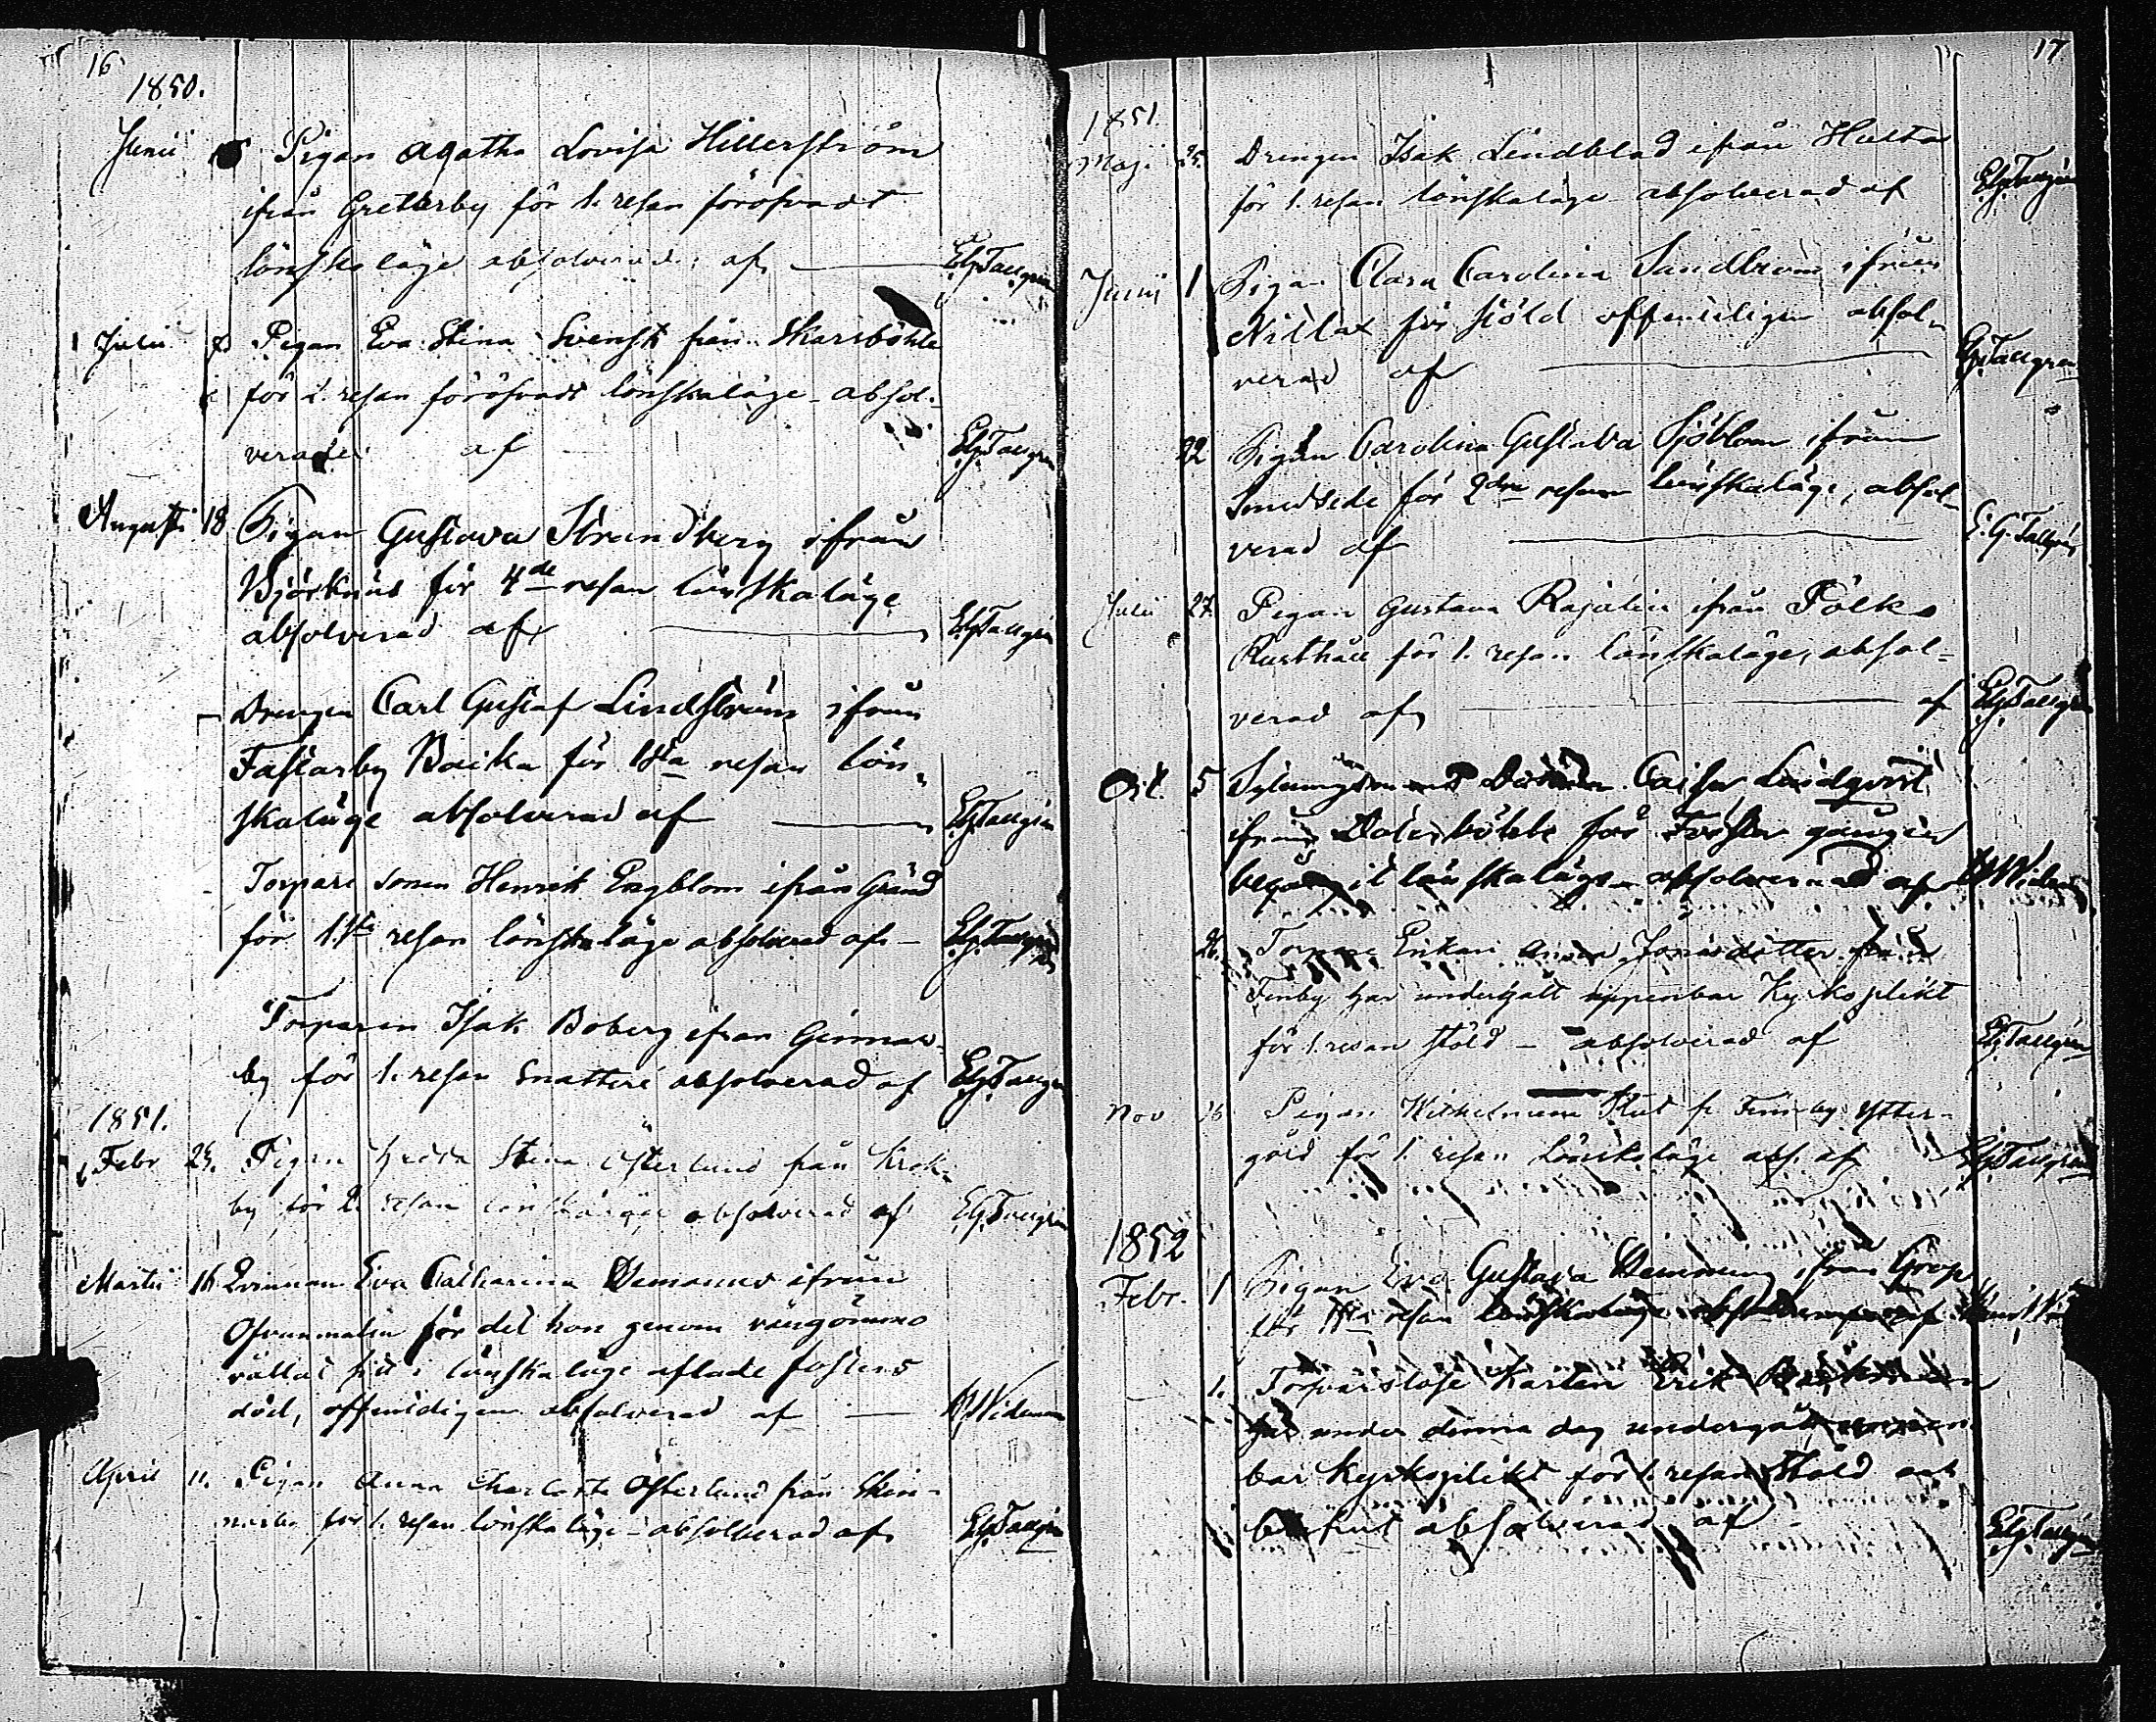 16
1850.
Junii 5 Pigan Agatha Lovisa Hillerström
ifrån Gretarby för 1. resan föröfvadt
lönskaläge absolverad af EgTallgren
Julii 7. Pigan Eva Stina Svensk från Skarsböhle
för 2. resan föröfvadt lönskaläge - absol-
verade af EgTallgren
Augusti 18 Pigan Gustava Strandberg ifrån
Björknäs för 4de resan lönskaläge
absolverad af EgTallgren
Drengen Carl Gustaf Lindström ifrån
Fastarby Backa för 1sta resan lön-
skaläge absolverad af EgTallgren
Torpare sonen Henrik Engblom ifrån Gränd
för 1sta resan lönskaläge absolverad af - EgTallgren
Torparen Isak Boberg ifrån Ginmar-
by för 1. resan Snatteri absolverad af EgTallgren
1851.
Febr 23. Pigan Hedda Stina Österlund från Krok-
by för 2. resan lönskaläge absolverad af EgTallgren
Martii 16 Qvinnan Eva Catharina ifrån
Ofvanmalm för det hon genom vangömmo
vållat sitt i lönskaläge aflade fosters
död, offentligen absolverad af
April 11. Pigan Anna Charlotta Österlund från Skin-
narbo för 1. resan lönskaläge - absolverad af EgTallgren
17
1851.
Maji 25. Drengen Isak Lindblad ifrån Hulta
för 1. resan lönskaläge absolverad af EgTallgren
Junii 1 Pigan Clara Carolina Sandbom ifrån
Nillax för stöld offentligen absol-
verad af EgTallgren
22 Pigan Carolina Gustava Sjöblom ifrån
Smedsede för 2dra resan lönskaläge, absol-
verad af E. G. Tallgren
Julii 27. Pigan Gustava Rajalin ifrån Pölks
Rusthåll för 1. resan lönskaläge, absol-
verad af af EgTallgren
Oct. 5 Caisa Lindqvist
ifrån Dalsböhle för Första gången
begånget lönskaläge absolverad af
26. Torpare Enkan Anna Jonasdotter från
Finby har undergått uppenbar Kyrkoplikt
för 1. resan stöld - absolverad af EgTallgren
Nov 16 Pigan Wilhelmina från Finby Ytter-
gård för 1. resan Lönskaläge abs. af EgTallgren
1852
Febr. 1 Pigan Eva Gustava Hemming ifrån Grop
för 1sta resan lönskaläge absolverad af
1. Förvarslöse Karlen Erik
har under denna dag undergått uppen-
bar Kyrkoplikt för 1. resan Stöld och
absolverad af EgTallgren